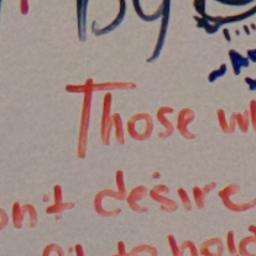 by
Those wh
on't desire
to hold